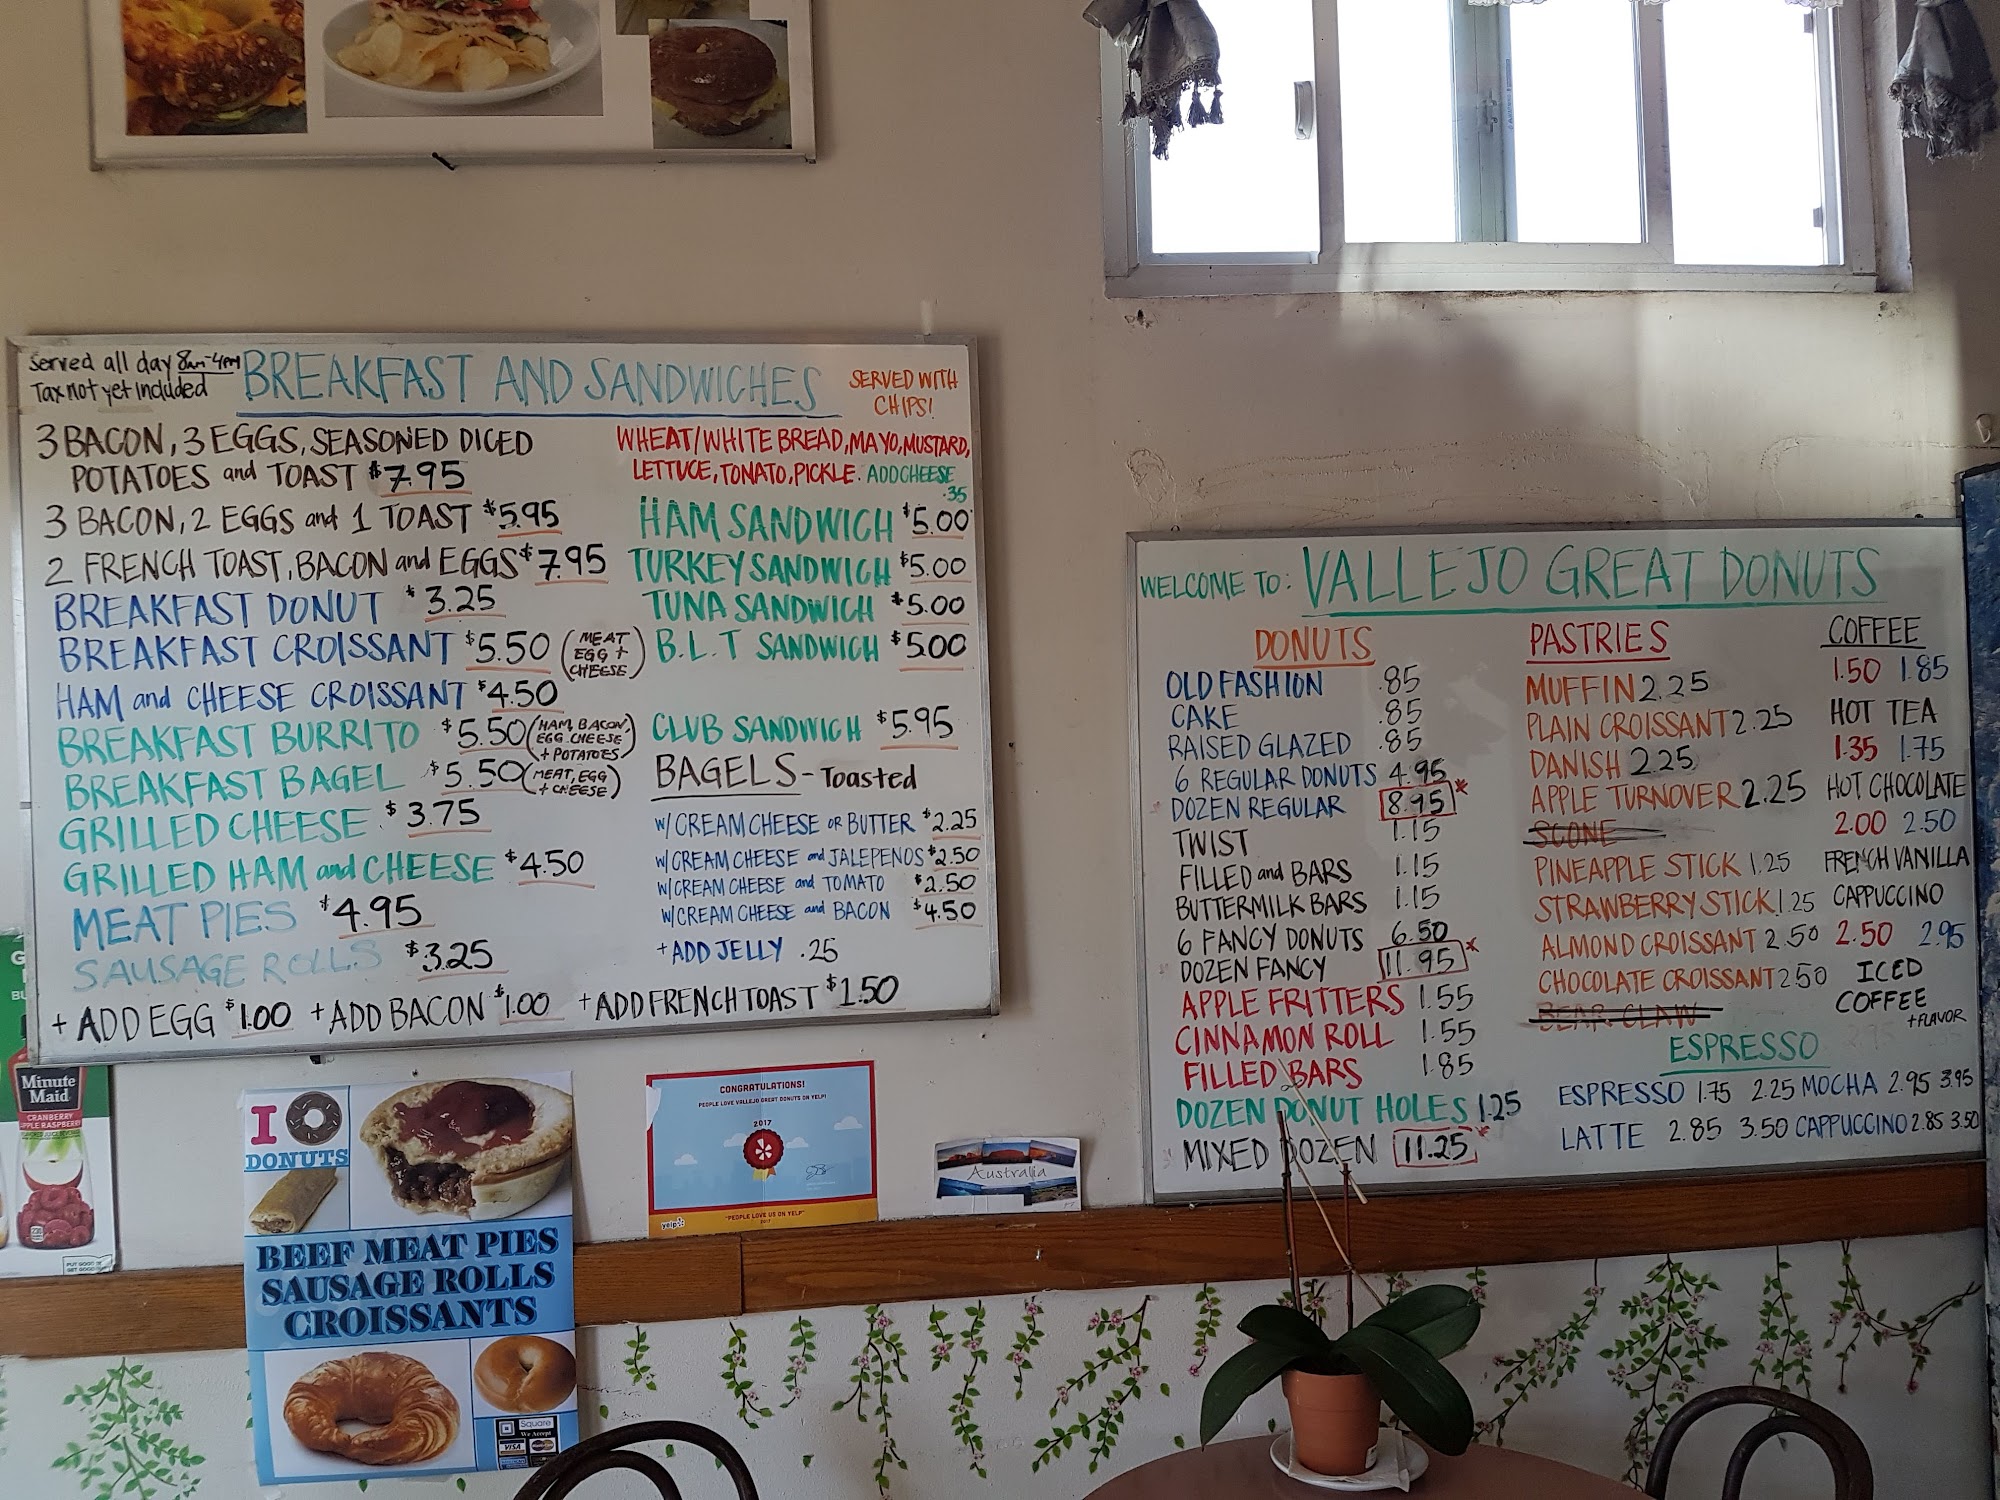 Served all day 8am-4pm
Tax not yet included
BREAKFAST AND SANDWICHES
SERVED WITH
CHIPS!
3 BACON, 3 EGGS, SEASONED DICED
POTATOES and TOAST $7.95
3 BACON, 2 EGGS and 1 TOAST $5.95
2 FRENCH TOAST, BACON and EGGS $7.95
BREAKFAST DONUT $3.25
BREAKFAST CROISSANT $5.50 (MEAT
EGG +
CHEESE)
HAM and CHEESE CROISSANT $4.50
BREAKFAST BURRITO $5.50 (HAM, BACON,
EGG, CHEESE
+ POTATOES)
BREAKFAST BAGEL $5.50 (MEAT, EGG
+ CHEESE)
GRILLED CHEESE $3.75
GRILLED HAM and CHEESE $4.50
MEAT PIES $4.95
SAUSAGE ROLLS $3.25
+ ADD EGG $1.00 + ADD BACON $1.00 + ADD FRENCH TOAST $1.50
WHEAT/WHITE BREAD, MAYO, MUSTARD,
LETTUCE, TONATO, PICKLE. ADD CHEESE
.35
HAM SANDWICH $5.00
TURKEY SANDWICH $5.00
TUNA SANDWICH $5.00
B.L.T SANDWICH $5.00
CLUB SANDWICH $5.95
BAGELS - Toasted
W/CREAM CHEESE OR BUTTER $2.25
W/CREAM CHEESE and JALEPENOS $2.50
W/CREAM CHEESE and TOMATO $2.50
W/CREAM CHEESE and BACON $4.50
+ ADD JELLY .25
WELCOME TO: VALLEJO GREAT DONUTS
DONUTS
OLD FASHION .85
CAKE .85
RAISED GLAZED .85
6 REGULAR DONUTS 4.95
DOZEN REGULAR 8.95*
TWIST 1.15
FILLED and BARS 1.15
BUTTERMILK BARS 1.15
6 FANCY DONUTS 6.50
DOZEN FANCY 11.95*
APPLE FRITTERS 1.55
CINNAMON ROLL 1.55
FILLED BARS 1.85
DOZEN DONUT HOLES 1.25
MIXED DOZEN 11.25*
PASTRIES
MUFFIN 2.25
PLAIN CROISSANT 2.25
DANISH 2.25
APPLE TURNOVER 2.25
SCONE
PINEAPPLE STICK 1.25
STRAWBERRY STICK 1.25
ALMOND CROISSANT 2.50
CHOCOLATE CROISSANT 2.50
BEAR CLAW
COFFEE
1.50 1.85
HOT TEA
1.35 1.75
HOT CHOCOLATE
2.00 2.50
FRENCH VANILLA
CAPPUCCINO
2.50 2.95
ICED
COFFEE
+FLAVOR
ESPRESSO
ESPRESSO 1.75 2.25 MOCHA 2.95 3.95
LATTE 2.85 3.50 CAPPUCCINO 2.85 3.50
Minute
Maid
CRANBERRY
APPLE RASPBERRY
I
DONUTS
BEEF MEAT PIES
SAUSAGE ROLLS
CROISSANTS
Square
We Accept
VISA
CONGRATULATIONS!
PEOPLE LOVE VALLEJO GREAT DONUTS ON YELP!
2017
yelp
"PEOPLE LOVE US ON YELP"
2017
Australia